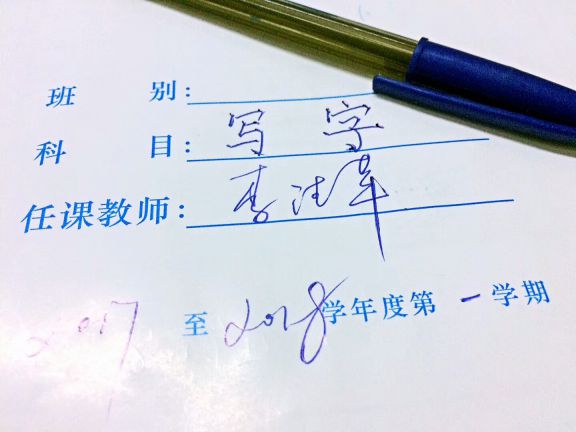 班 别:
科 目: 写 字
任课教师: 李
2017 至 2018 学年度第 一 学期